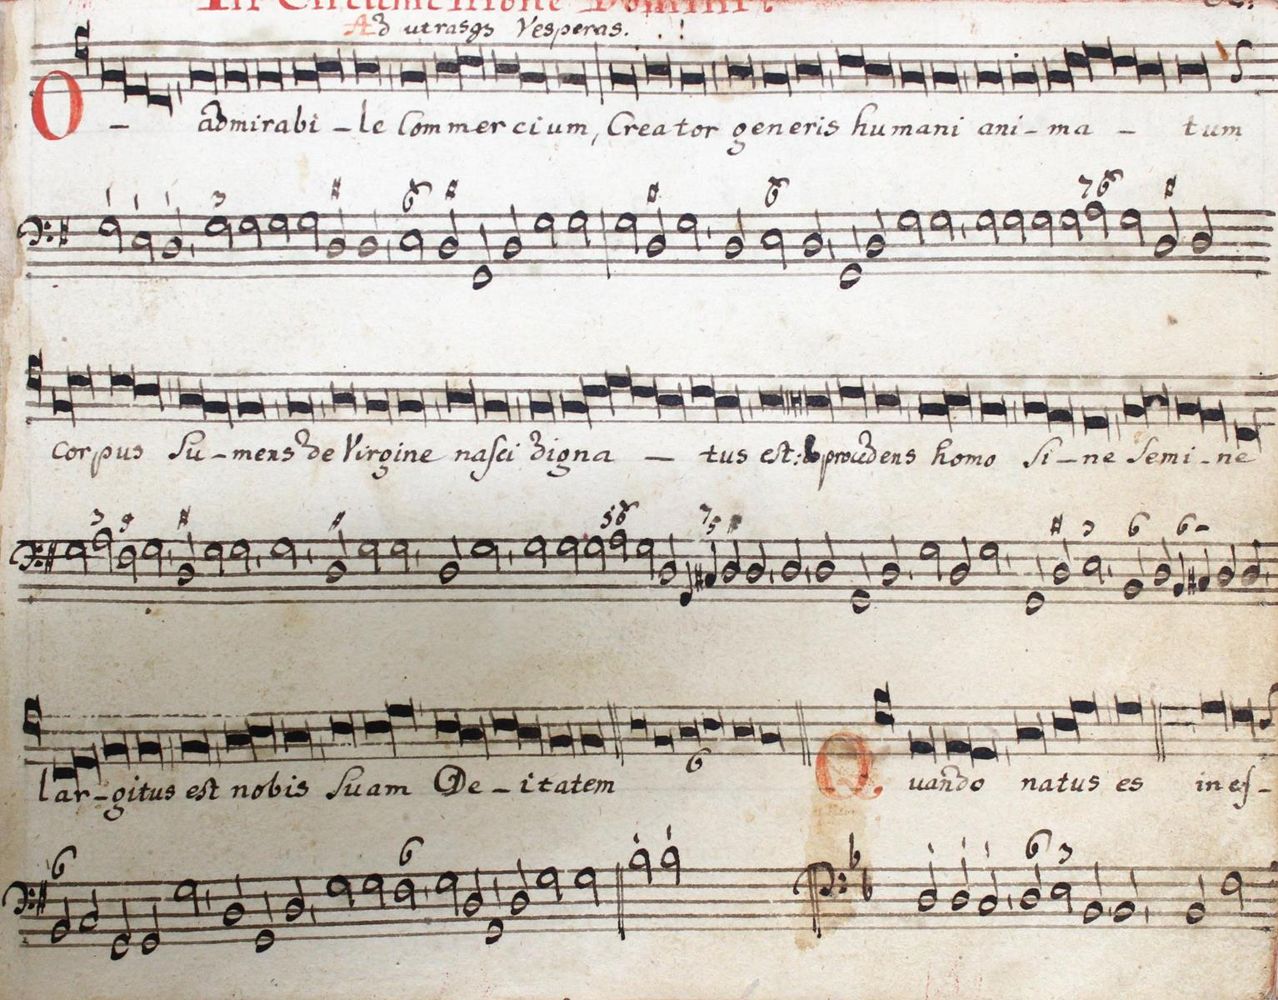 In Circumcisione Domini.
Ad utrasqz Vesperas.
O - admirabi - le Commercium, Creator generis humani ani - ma - tum
corpus su - mens de Virgine nasci digna - tus est: & procedens homo si - ne semi - ne
lar - gitus est nobis suam De - itatem Quando natus es inef -